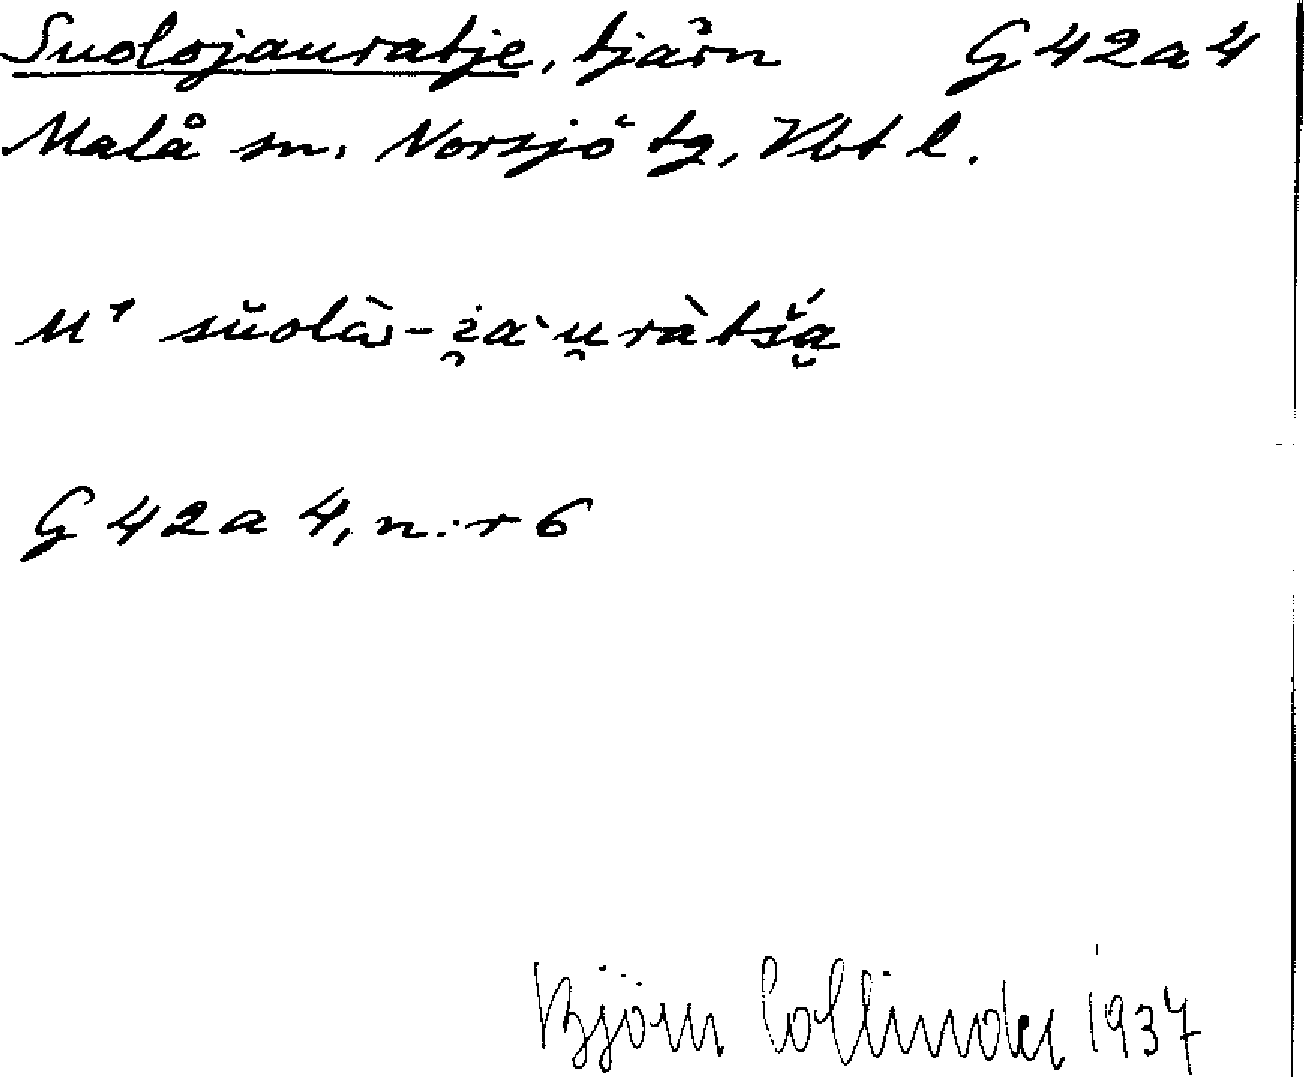 Suolojauratje, tjärn G42a4
Malå sn. Norsjö tg, Vbt l.
G 42a 4, n:r 6
Björn Collinder 1937